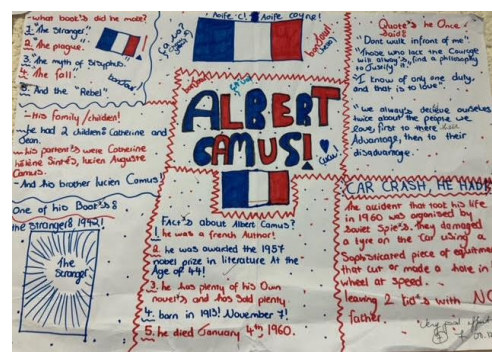 Aoife.C! Aoife coyne!
-what book's did he make?
1. "The Stranger".
2. "The plague.
3. "The myth of Sisyphus.
4. The fall.
5. And the "Rebel"
bonjour!
-His family/childen!
-he had 2 childen: Catherine and
Jean.
-his parent's were Catherine
hélène Sintés, lucien Auguste
Camus.
-And his brother lucien Camus!
One of his Book's:
the stranger: 1942!
The
Stranger
ALBERT
CAMUS!
Fact's about Albert Camus?
1. he was a french Author!
2. he was awarded the 1957
nobel prize in literature At the
Age of 44!
3. he has plenty of his Own
novel's and has Sold plenty.
4. born in 1913! November 7!
5. he died January 4th, 1960.
Quote's he Once
Said:
"Dont walk infront of me".
"Those who lack the Courage
will always find a philosophy
to Justify it".
"I know of only one duty,
and that is to love".
"We always decieve ourselves
twice about the people we
love, first to there
Advantage, then to their
disadvantage.
CAR CRASH, HE HAD!
the accident that took his life
in 1960 was organised by
Soviet Spie's, they damaged
a tyre on the Car using a
Sophisticated piece of equitment
that cut or made a hole in
wheel at Speed.
leaving 2 kid's with NO
father.
Very good effort